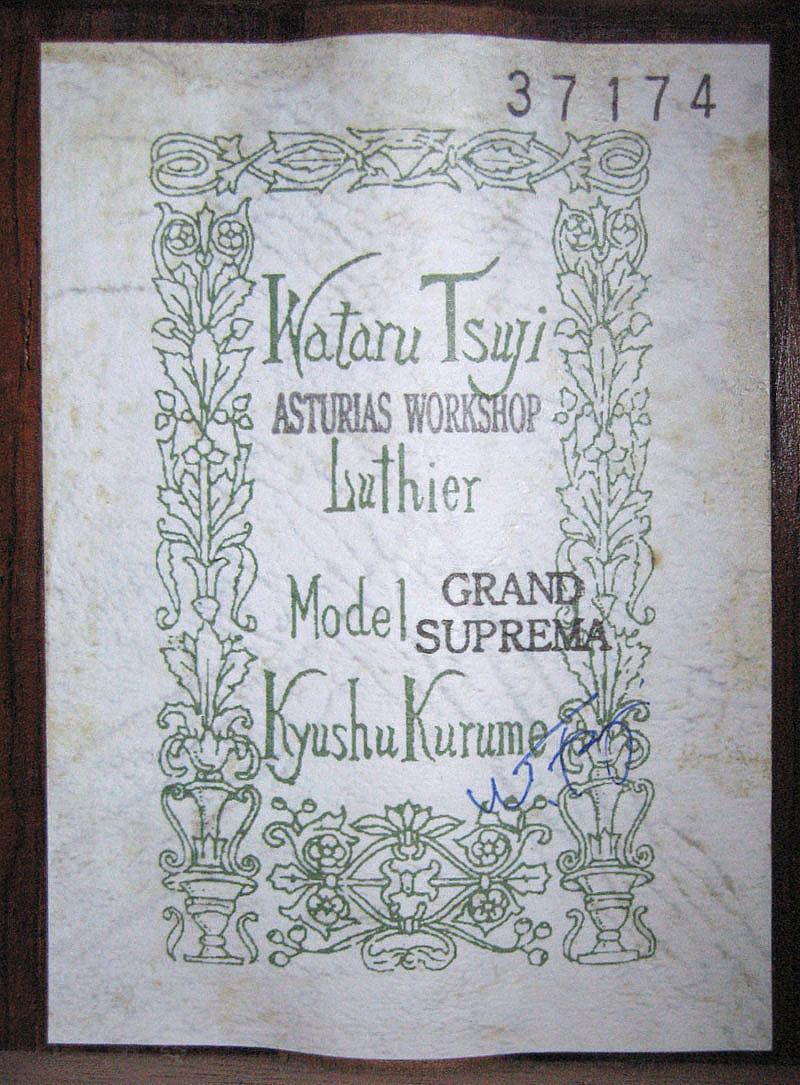 37174
Wataru Tsuji
ASTURIAS WORKSHOP
Luthier
Model GRAND SUPREMA
Kyushu Kurume